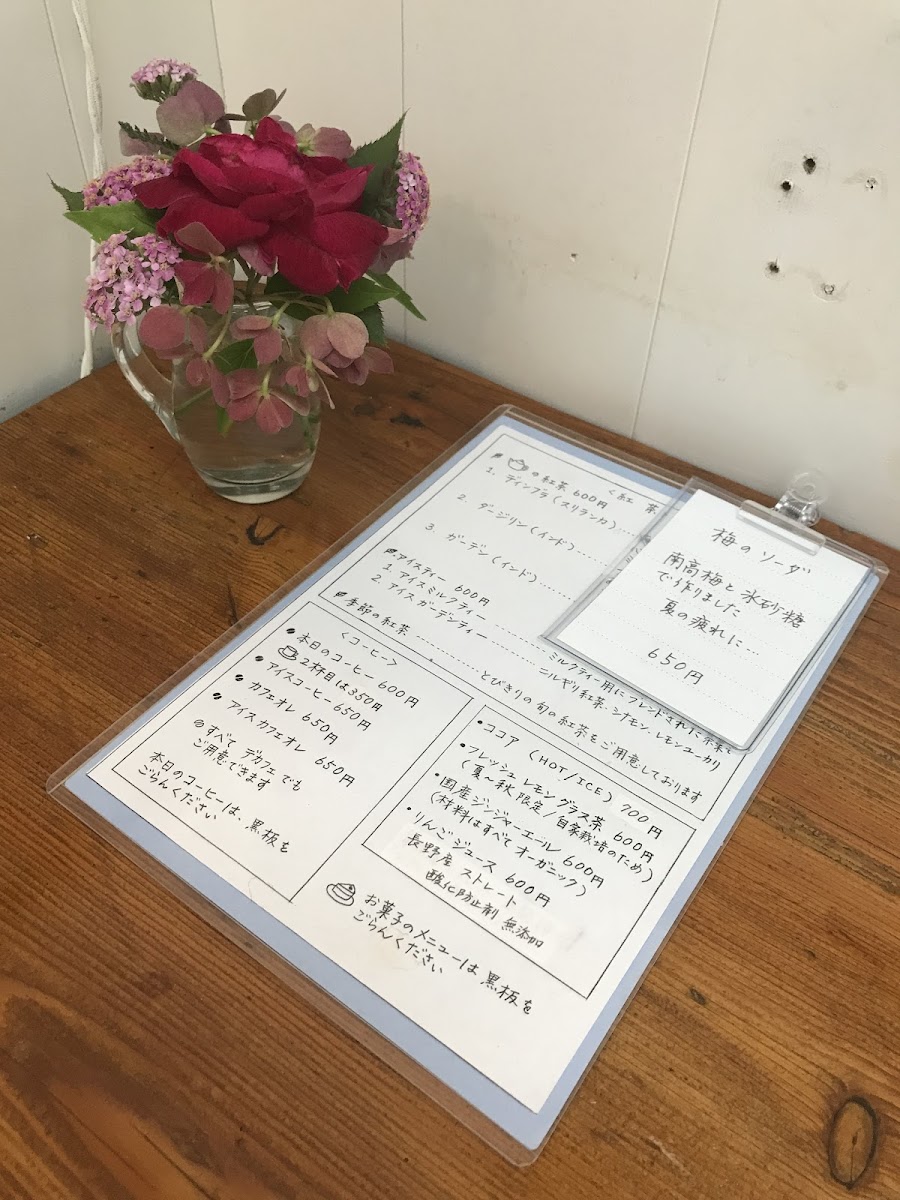 の紅茶 600円
<紅 茶
1. ディンブラ(スリランカ)
2. ダージリン(インド)
3. ガーデン(インド)
アイスティー 600円
1. アイスミルクティー ミルクティー用にブレンドされた茶葉で
2. アイスガーデンティー ニルギリ紅茶、シナモン、レモンユーカリ
季節の紅茶 とびきりの旬の紅茶をご用意しております
梅のソーダ
南高梅と氷砂糖
で作りました
夏の疲れに…
650円
<コーヒー>
本日のコーヒー 600円
2杯目は350円
アイスコーヒー 650円
カフェオレ 650円
アイスカフェオレ 650円
すべて デカフェでも
ご用意できます
本日のコーヒーは、黒板を
ごらんください
・ココア (HOT/ICE) 700円
・フレッシュレモングラス茶 600円
(夏〜秋限定/自家栽培のため)
・国産ジンジャーエール 600円
(材料はすべてオーガニック)
・りんごジュース 600円
長野産 ストレート
酸化防止剤 無添加
お菓子のメニューは 黒板を
ごらんください